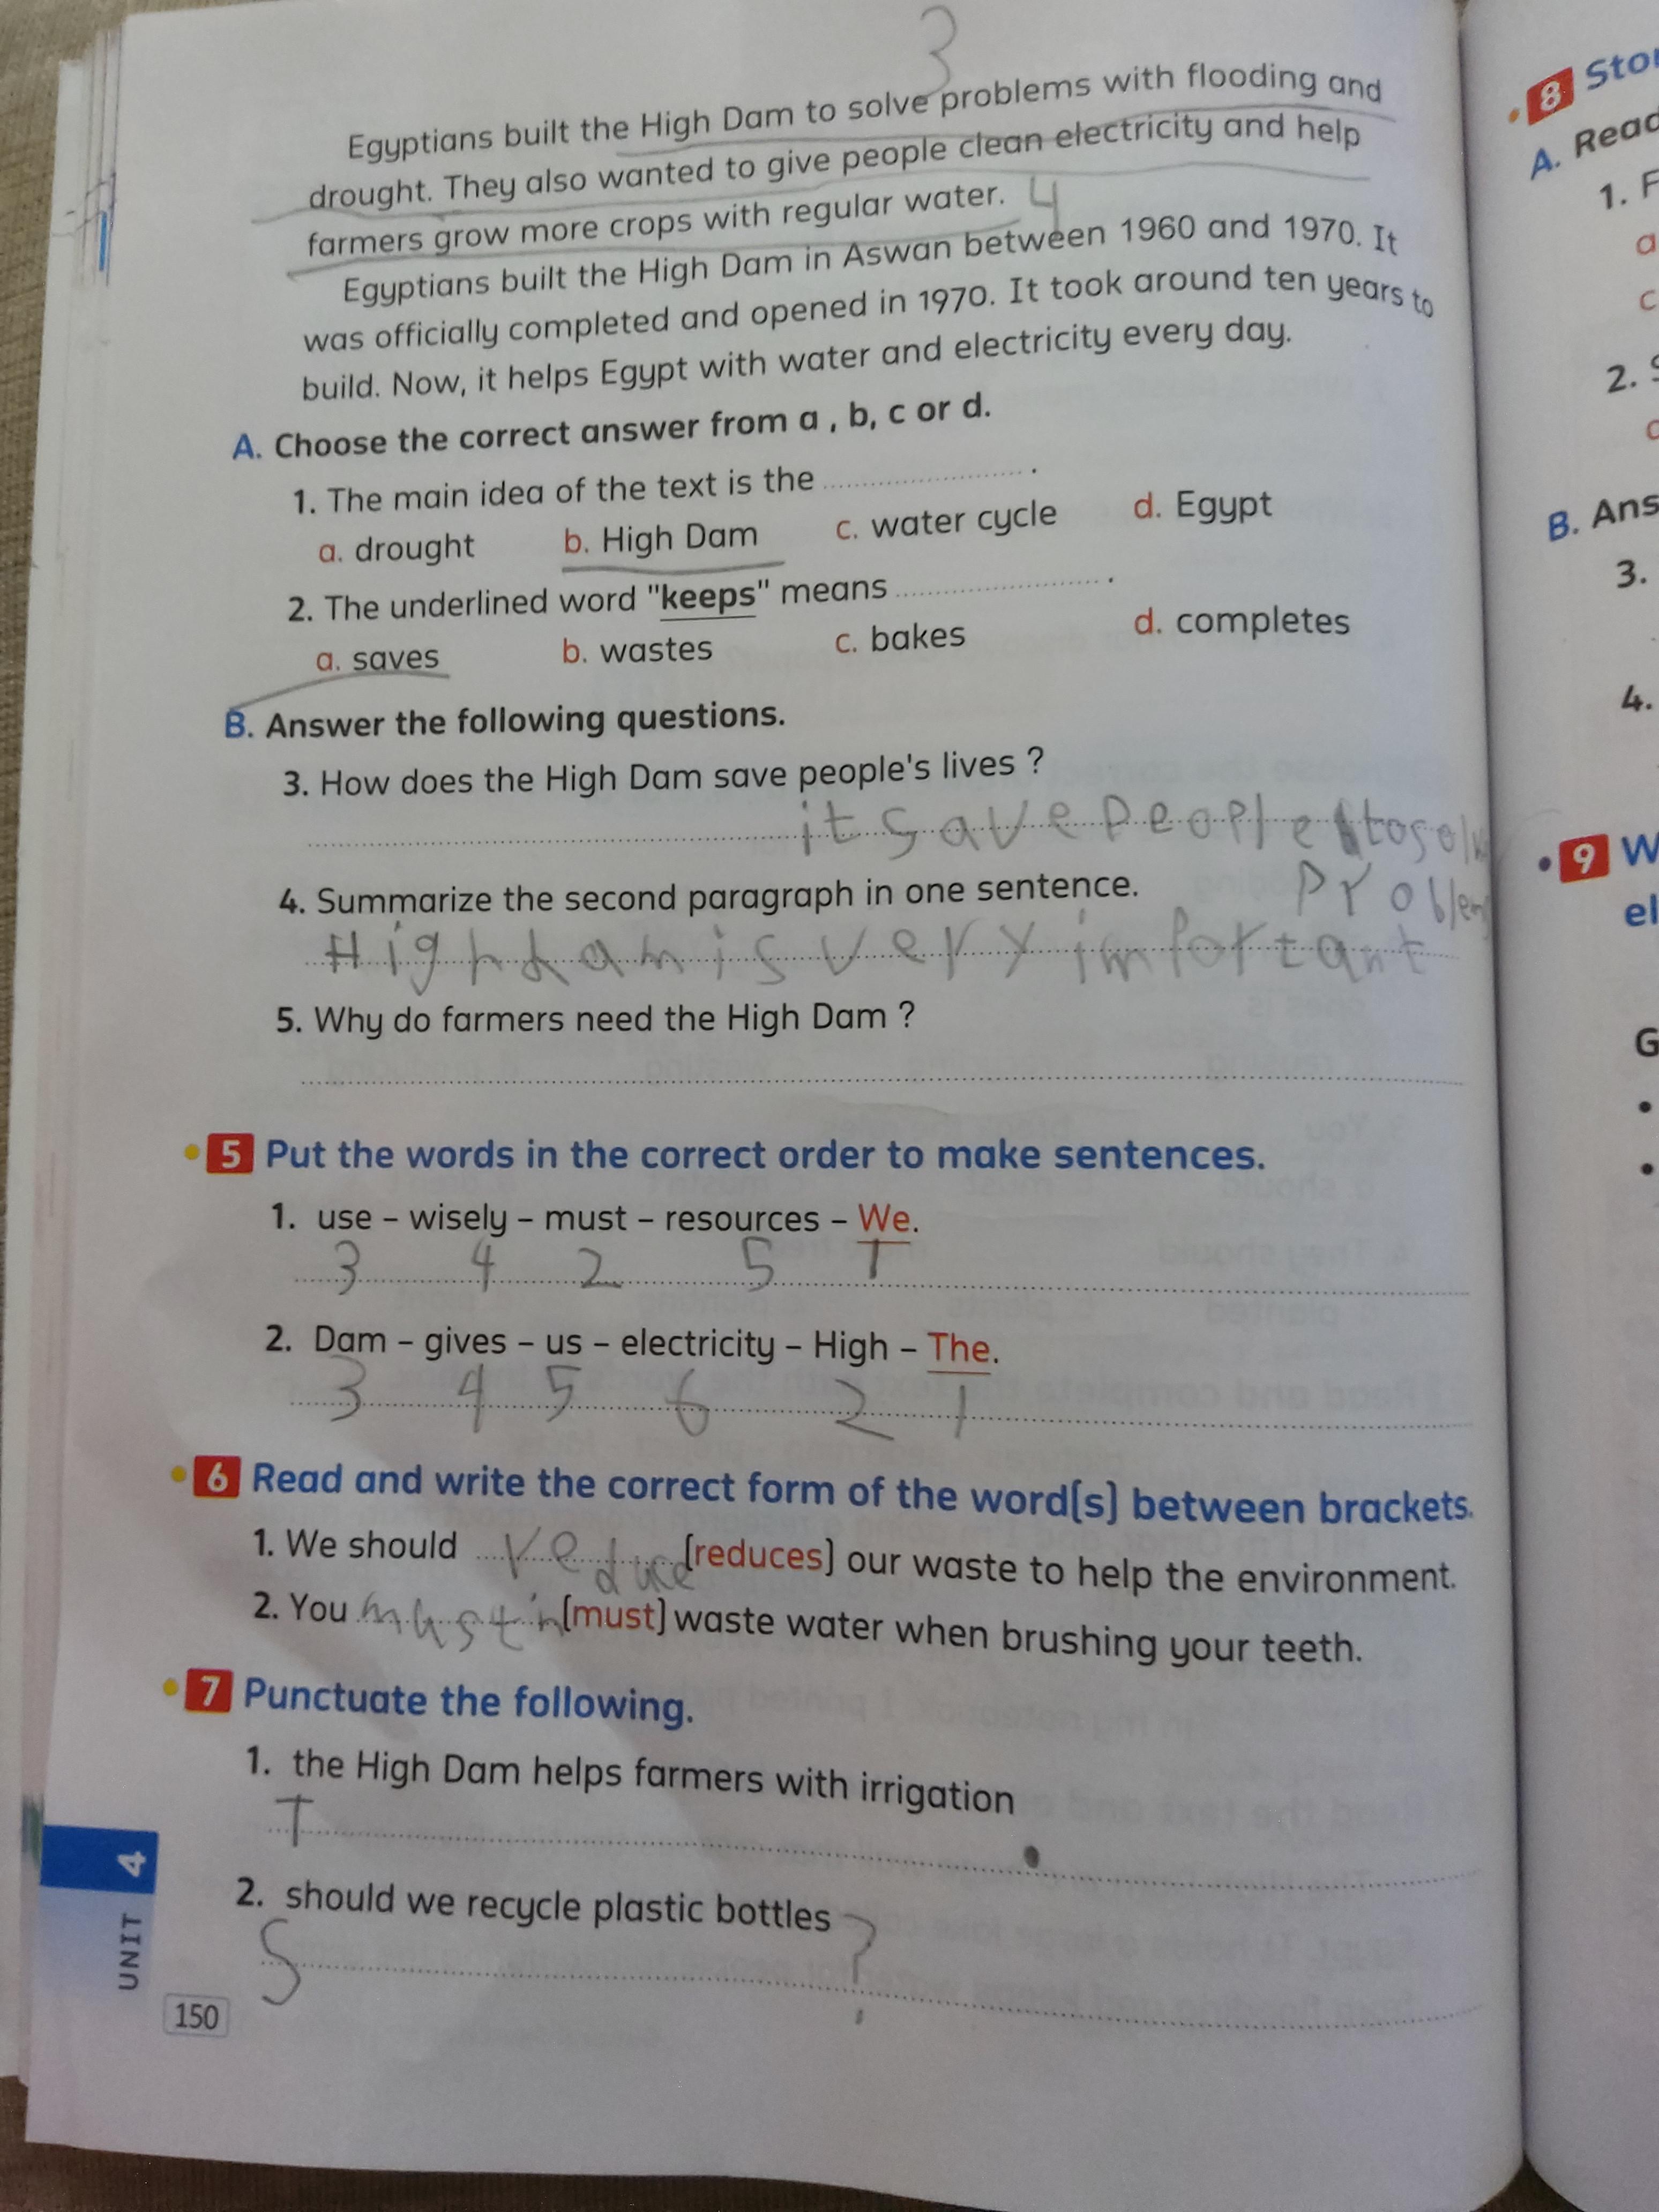 3
Egyptians built the High Dam to solve problems with flooding and
drought. They also wanted to give people clean electricity and help
farmers grow more crops with regular water. 4
Egyptians built the High Dam in Aswan between 1960 and 1970. It
was officially completed and opened in 1970. It took around ten years to
build. Now, it helps Egypt with water and electricity every day.
A. Choose the correct answer from a , b, c or d.
1. The main idea of the text is the .................... .
a. drought b. High Dam c. water cycle d. Egypt
2. The underlined word "keeps" means .................... .
a. saves b. wastes c. bakes d. completes
B. Answer the following questions.
3. How does the High Dam save people's lives ?
it save people to solv
problem
4. Summarize the second paragraph in one sentence.
High dam is very important
5. Why do farmers need the High Dam ?
5 Put the words in the correct order to make sentences.
1. use – wisely – must – resources – We.
3 4 2 5 1
2. Dam – gives – us – electricity – High – The.
3 4 5 6 2 1
6 Read and write the correct form of the word(s) between brackets.
1. We should reduce (reduces) our waste to help the environment.
2. You must'n (must) waste water when brushing your teeth.
7 Punctuate the following.
1. the High Dam helps farmers with irrigation
T .
2. should we recycle plastic bottles
S ?
UNIT 4
150
8 Stor
A. Read
1. F
a
c
2. S
B. Ans
3.
4.
9 W
el
G